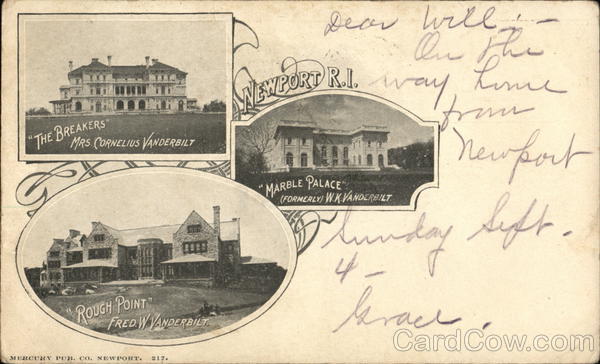 "THE BREAKERS"
MRS. CORNELIUS VANDERBILT
NEWPORT R.I.
"MARBLE PALACE"
(FORMERLY) W.K. VANDERBILT
"ROUGH POINT"
FRED. W. VANDERBILT
MERCURY PUB. CO. NEWPORT. 217.
Dear Will :-
On the
way home
from
Newport
Sunday Sept.
4-
Grace.
CardCow.com